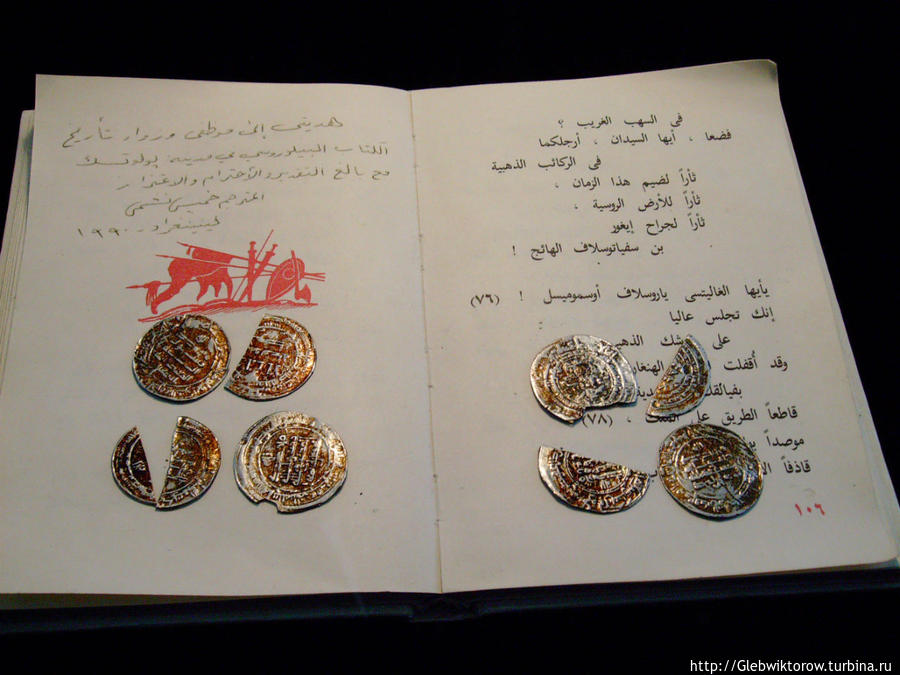 هديتي إلى موطني وزوار تأريخ
الكتاب البيلوروسي في مدينة پولوتسك
مع بالغ التقدير والأحترام والاعتزاز
المترجم خميس
لينينغراد - ١٩٩٠
في السهب الغريب ؟
فضعا ، أيها السيدان ، أرجلكما
في الركائب الذهبية
ثأراً لضيم هذا الزمان ،
ثأراً للأرض الروسية ،
ثأراً لجراح إيغور
بن سفياتوسلاف الهائج !
يأيها الغاليتسى ياروسلاف أوسموميسل ! (٧٦)
إنك تجلس عاليا
على شك الذهبي
وقد أقفلت الهنغار
بفيالقك دية
قاطعاً الطريق على الملك ، (٧٨)
موصداً بو
قاذفاً
١٠٦
http://Glebwiktorow.turbina.ru